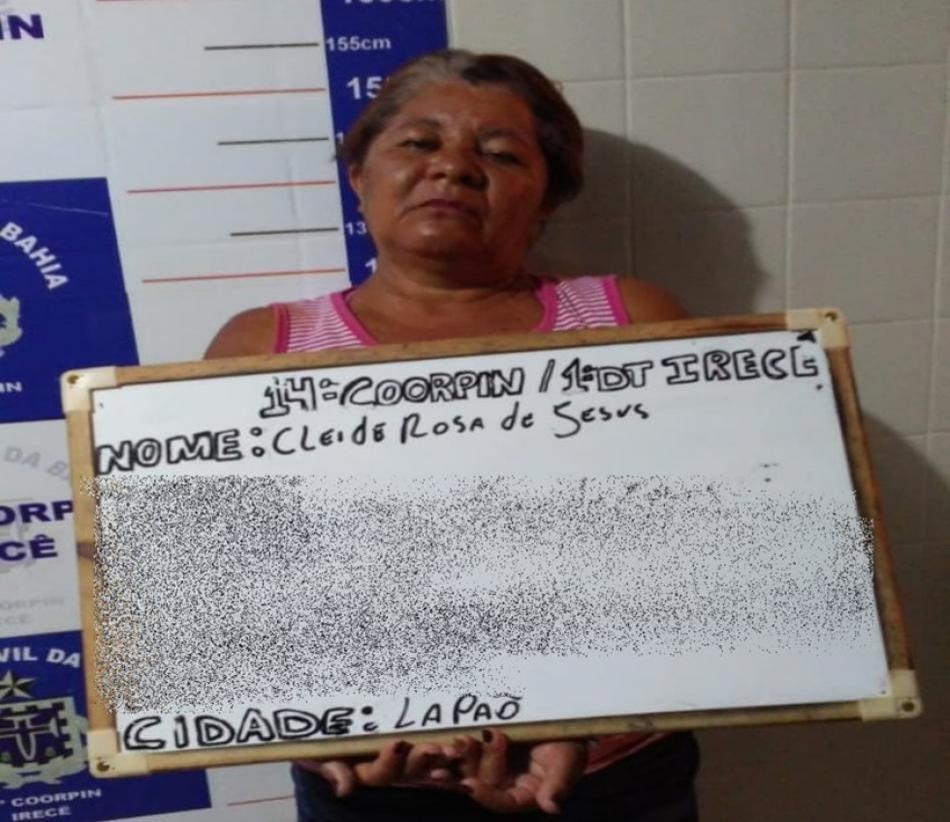 IN
155cm
15
13
1
BAHIA
IN
DA B
ORP
CÊ
COORPIN
VIL DA
COORPIN
IRECÊ
14ª COORPIN / 1ª DT IRECE
NOME: CLEIDE ROSA de JESUS
CIDADE: LAPAÕ